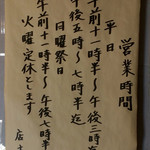 営業時間
平日
午前十一時半〜午後三時
午後五時〜七時半迄
日曜祭日
午前十一時半〜午後七時半
火曜定休とします
店